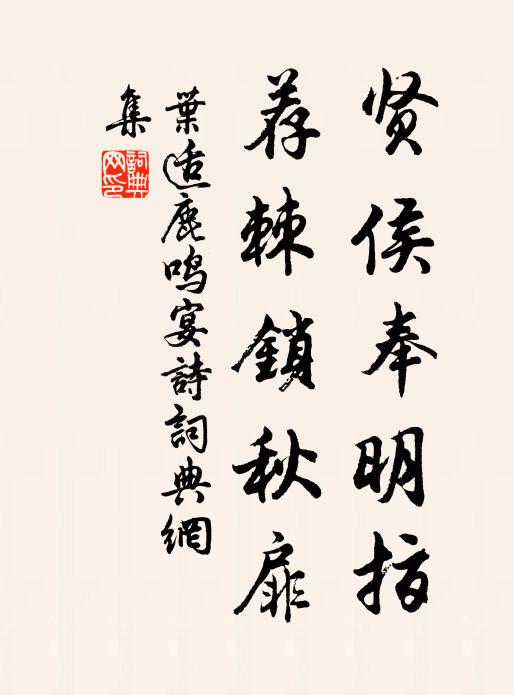 贤侯奉明指
荐棘鎖秋扉
葉适鹿鸣宴詩詞典網
集
詞典網印